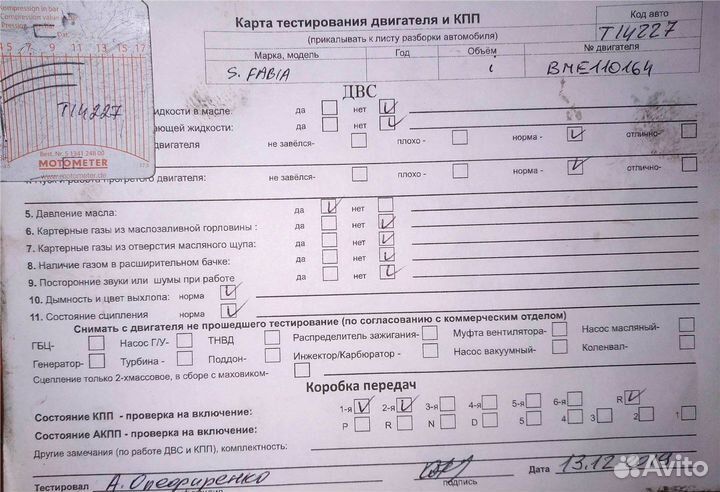 Compression in bar
Compression value
Pression
bar
5 7 9 11 13 15 17
T14227
Best. Nr. 5 1341 248 00
MOTOMETER
www.motometer.de
Карта тестирования двигателя и КПП
(прикалывать к листу разборки автомобиля)
Код авто
T14227
Марка, модель Год Объём № двигателя
S. FABIA BME110164
ДВС
жидкости в масле: да нет
ющей жидкости: да нет
двигателя не завёлся- плохо - норма - отлично-
работа прогретого двигателя: не завёлся- плохо - норма - отлично-
5. Давление масла: да нет
6. Картерные газы из маслозаливной горловины : да нет
7. Картерные газы из отверстия масляного щупа: да нет
8. Наличие газом в расширительном бачке: да нет
9. Посторонние звуки или шумы при работе да нет
10. Дымность и цвет выхлопа: норма
11. Состояние сцепления норма
Снимать с двигателя не прошедшего тестирование (по согласованию с коммерческим отделом)
ГБЦ- Насос Г/У- ТНВД Распределитель зажигания- Муфта вентилятора- Насос масляный-
Генератор- Турбина - Поддон- Инжектор/Карбюратор - Насос вакуумный- Коленвал-
Сцепление только 2-хмассовое, в сборе с маховиком-
Коробка передач
Состояние КПП - проверка на включение: 1-я 2-я 3-я 4-я 5-я 6-я R
Состояние АКПП - проверка на включение: P R N D 5 4 3 2 1
Другие замечания (по работе ДВС и КПП), комплектность:
Тестировал А. Олефиренко Дата 13.12.2019
подпись
Avito